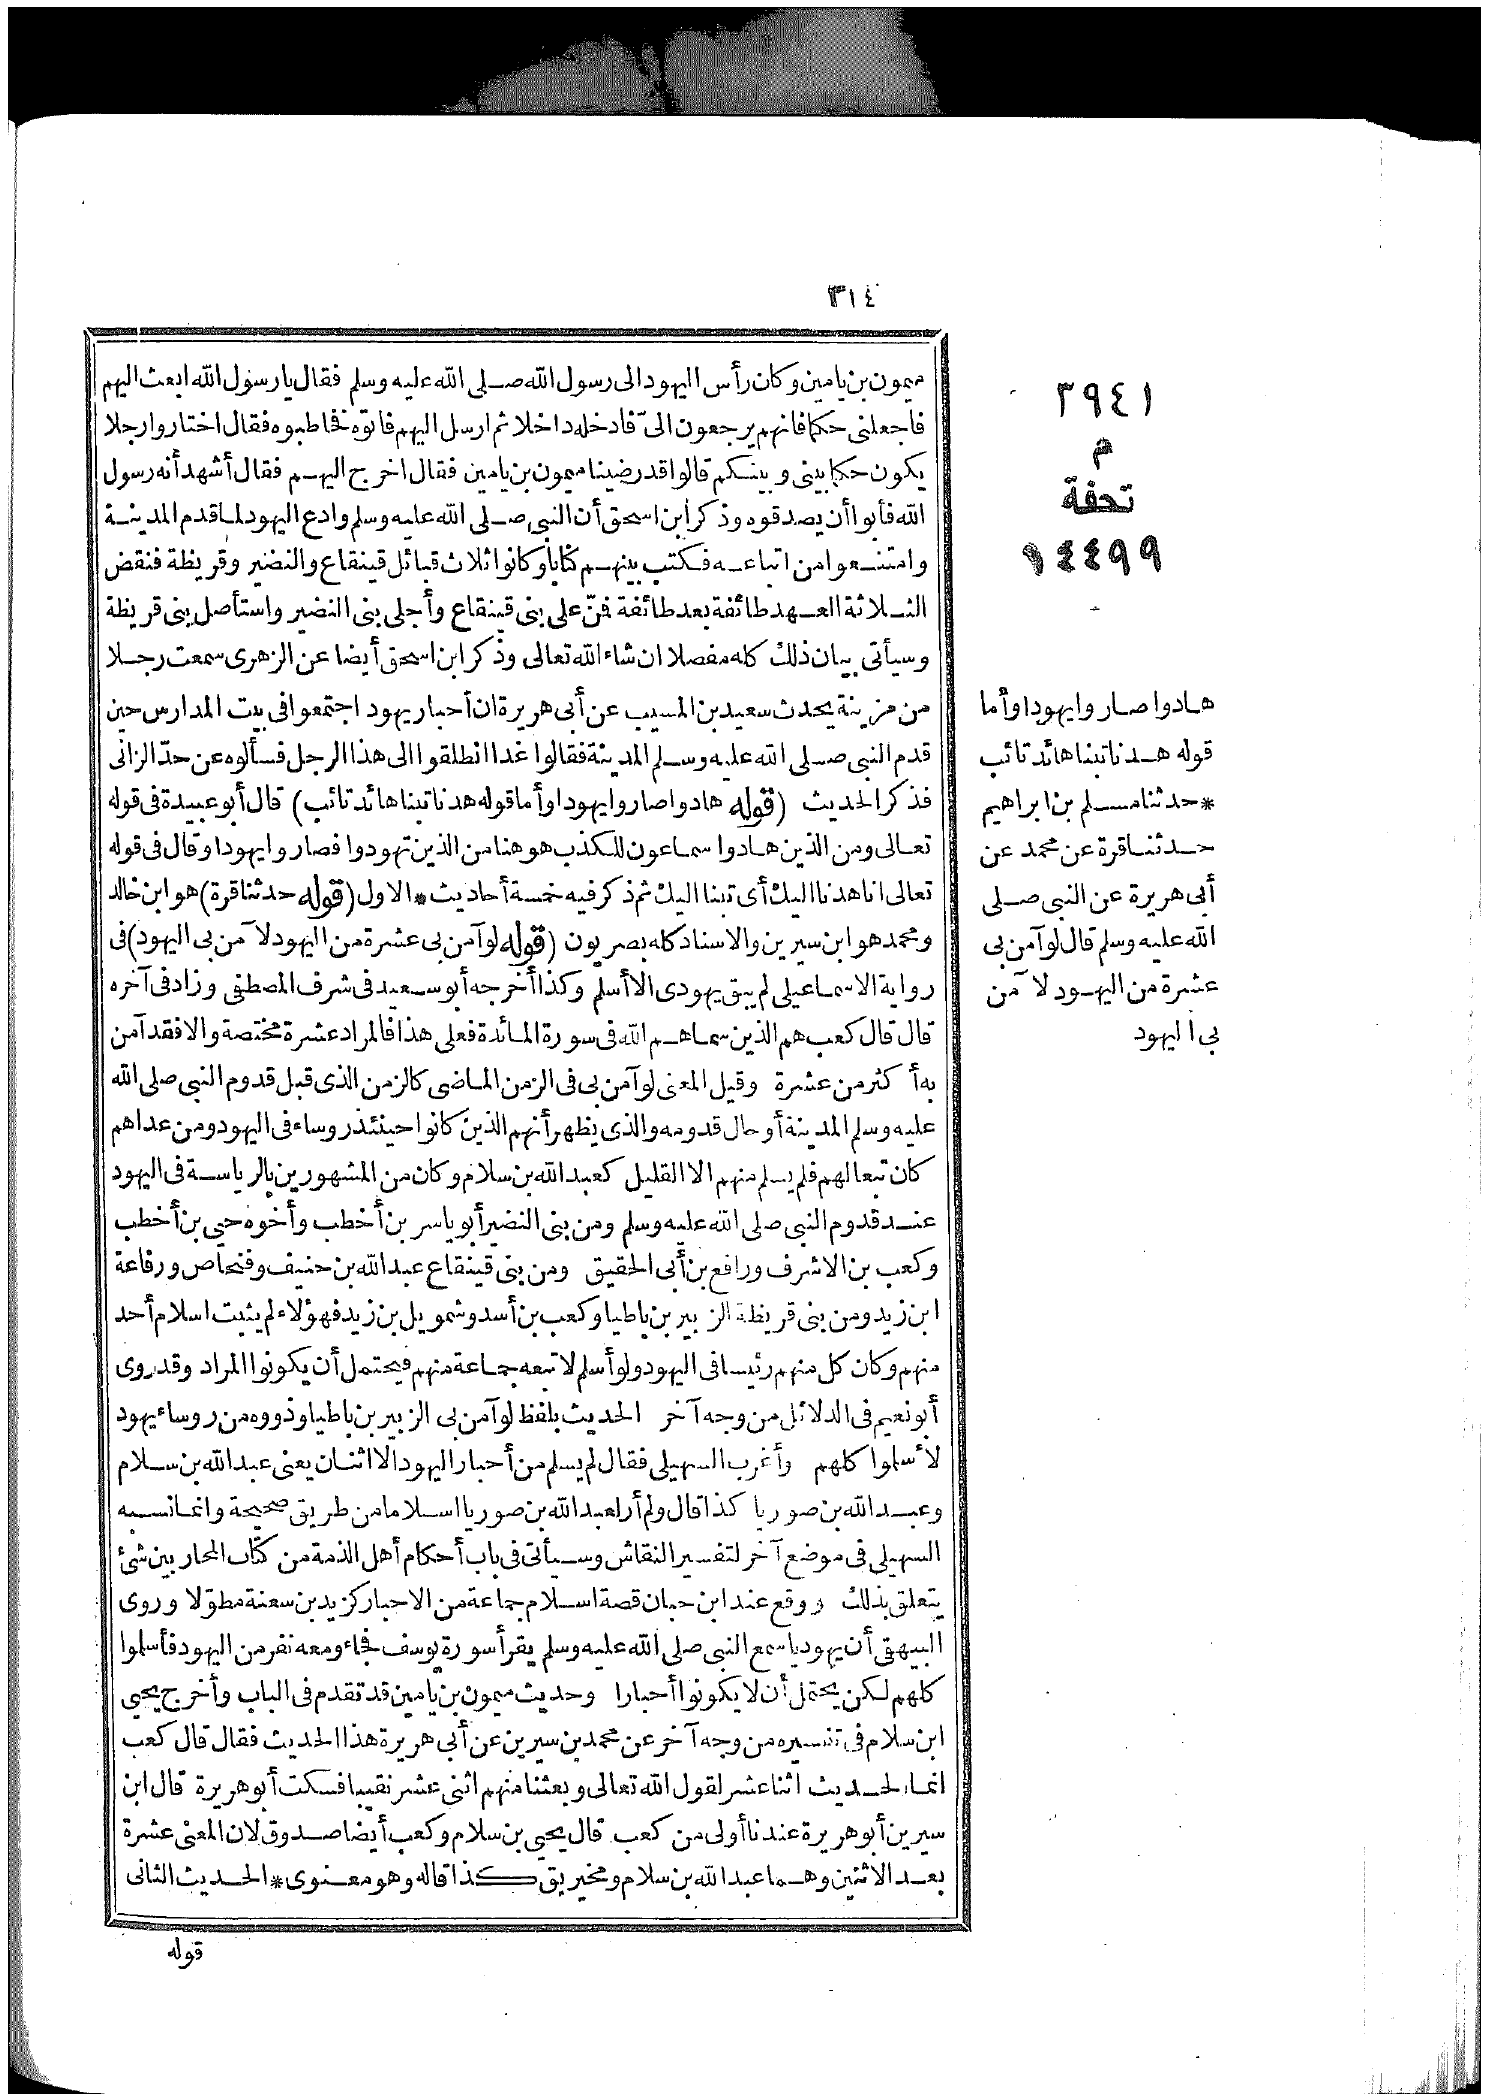 ٣١٤
ميمون بن يامين وكان رأس اليهود الى رسول الله صلى الله عليه وسلم فقال يا رسول الله ابعث اليهم
فاجعلنى حكما فانهم يرجعون الىّ فادخله داخلا ثم ارسل اليهم فاتوه فخاطبوه فقال اختاروا رجلا
يكون حكما بينى وبينكم قالوا قد رضينا ميمون بن يامين فقال اخرج اليهم فقال أشهد أنه رسول
الله فأبوا أن يصدقوه وذكر ابن اسحق أن النبى صلى الله عليه وسلم وادع اليهود لما قدم المدينة
وامتنعوا من اتباعه فكتب بينهم كتابا وكانوا ثلاث قبائل قينقاع والنضير وقريظة فنقض
الثلاثة العهد طائفة بعد طائفة فمنّ على بنى قينقاع وأجلى بنى النضير واستأصل بنى قريظة
وسيأتى بيان ذلك كله مفصلا ان شاء الله تعالى وذكر ابن اسحق أيضا عن الزهرى سمعت رجلا
من مزينة يحدث سعيد بن المسيب عن أبى هريرة ان أحبار يهود اجتمعوا فى بيت المدارس حين
قدم النبى صلى الله عليه وسلم المدينة فقالوا غدا انطلقوا الى هذا الرجل فسألوه عن حدّ الزانى
فذكر الحديث (قوله هادوا صاروا يهودا وأما قوله هدنا تبنا هائد تائب) قال أبو عبيدة فى قوله
تعالى ومن الذين هادوا سماعون للكذب هو هنا من الذين تهودوا فصاروا يهودا وقال فى قوله
تعالى انا هدنا اليك أى تبنا اليك ثم ذكر فيه خمسة أحاديث * الاول (قوله حدثنا قرة) هو ابن خالد
ومحمد هو ابن سيرين والاسناد كله بصريون (قوله لو آمن بى عشرة من اليهود لآمن بى اليهود) فى
رواية الاسماعيلى لم يبق يهودى الا أسلم وكذا أخرجه أبو سعيد فى شرف المصطفى وزاد فى آخره
قال قال كعب هم الذين سماهم الله فى سورة المائدة فعلى هذا فالمراد عشرة مختصة والا فقد آمن
به أكثر من عشرة وقيل المعنى لو آمن بى فى الزمن الماضى كالزمن الذى قبل قدوم النبى صلى الله
عليه وسلم المدينة أو حال قدومه والذى يظهر أنهم الذين كانوا حينئذ روساء فى اليهود ومن عداهم
كان تبعا لهم فلم يسلم منهم الا القليل كعبد الله بن سلام وكان من المشهورين بالرياسة فى اليهود
عند قدوم النبى صلى الله عليه وسلم ومن بنى النضير أبو ياسر بن أخطب وأخوه حيى بن أخطب
وكعب بن الاشرف ورافع بن أبى الحقيق ومن بنى قينقاع عبد الله بن حنيف وفنحاص ورفاعة
ابن زيد ومن بنى قريظة الزبير بن باطيا وكعب بن أسد وشمويل بن زيد فهؤلاء لم يثبت اسلام أحد
منهم وكان كل منهم رئيسا فى اليهود ولو أسلم لاتبعه جماعة منهم فيحتمل أن يكونوا المراد وقد روى
أبو نعيم فى الدلائل من وجه آخر الحديث بلفظ لو آمن بى الزبير بن باطيا وذووه من روساء يهود
لأسلموا كلهم وأغرب السهيلى فقال لم يسلم من أحبار اليهود الا اثنان يعنى عبد الله بن سلام
وعبد الله بن صوريا كذا قال ولم أر لعبد الله بن صوريا اسلاما من طريق صحيحة وانما نسبه
السهيلى فى موضع آخر لتفسير النقاش وسيأتى فى باب أحكام أهل الذمة من كتاب المحاربين شئ
يتعلق بذلك ووقع عند ابن حبان قصة اسلام جماعة من الاحبار كزيد بن سعنة مطوّلا وروى
البيهقى أن يهوديا سمع النبى صلى الله عليه وسلم يقرأ سورة يوسف فجاء ومعه نفر من اليهود فأسلموا
كلهم لكن يحتمل أن لا يكونوا أحبارا وحديث ميمون بن يامين قد تقدم فى الباب وأخرج يحيى
ابن سلام فى تفسيره من وجه آخر عن محمد بن سيرين عن أبى هريرة هذا الحديث فقال قال كعب
انما الحديث اثنا عشر لقول الله تعالى وبعثنا منهم اثنى عشر نقيبا فسكت أبو هريرة قال ابن
سيرين أبو هريرة عندنا أولى من كعب قال يحيى بن سلام وكعب أيضا صدوق لان المعنى عشرة
بعد الاثنين وهما عبد الله بن سلام ومخيريق كذا قاله وهو معنوى * الحديث الثانى
قوله
٣٩٤١
م
تحفة
١٤٤٩٩
هادوا صاروا يهودا وأما
قوله هدنا تبنا هائد تائب
* حدثنا مسلم بن ابراهيم
حدثنا قرة عن محمد عن
أبى هريرة عن النبى صلى
الله عليه وسلم قال لو آمن بى
عشرة من اليهود لآمن
بى اليهود